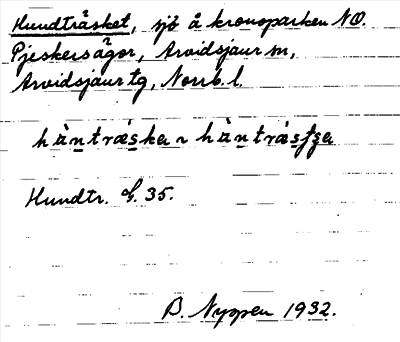 Hundträsket, sjö å kronoparken NO.
Pjeskersågor, Arvidsjaur sn,
Arvidsjaur tg, Norrb. l.
hàntrǽska ~ hàntrásʃʒa
Hundtr. G. 35.
B. Nyppen 1932.